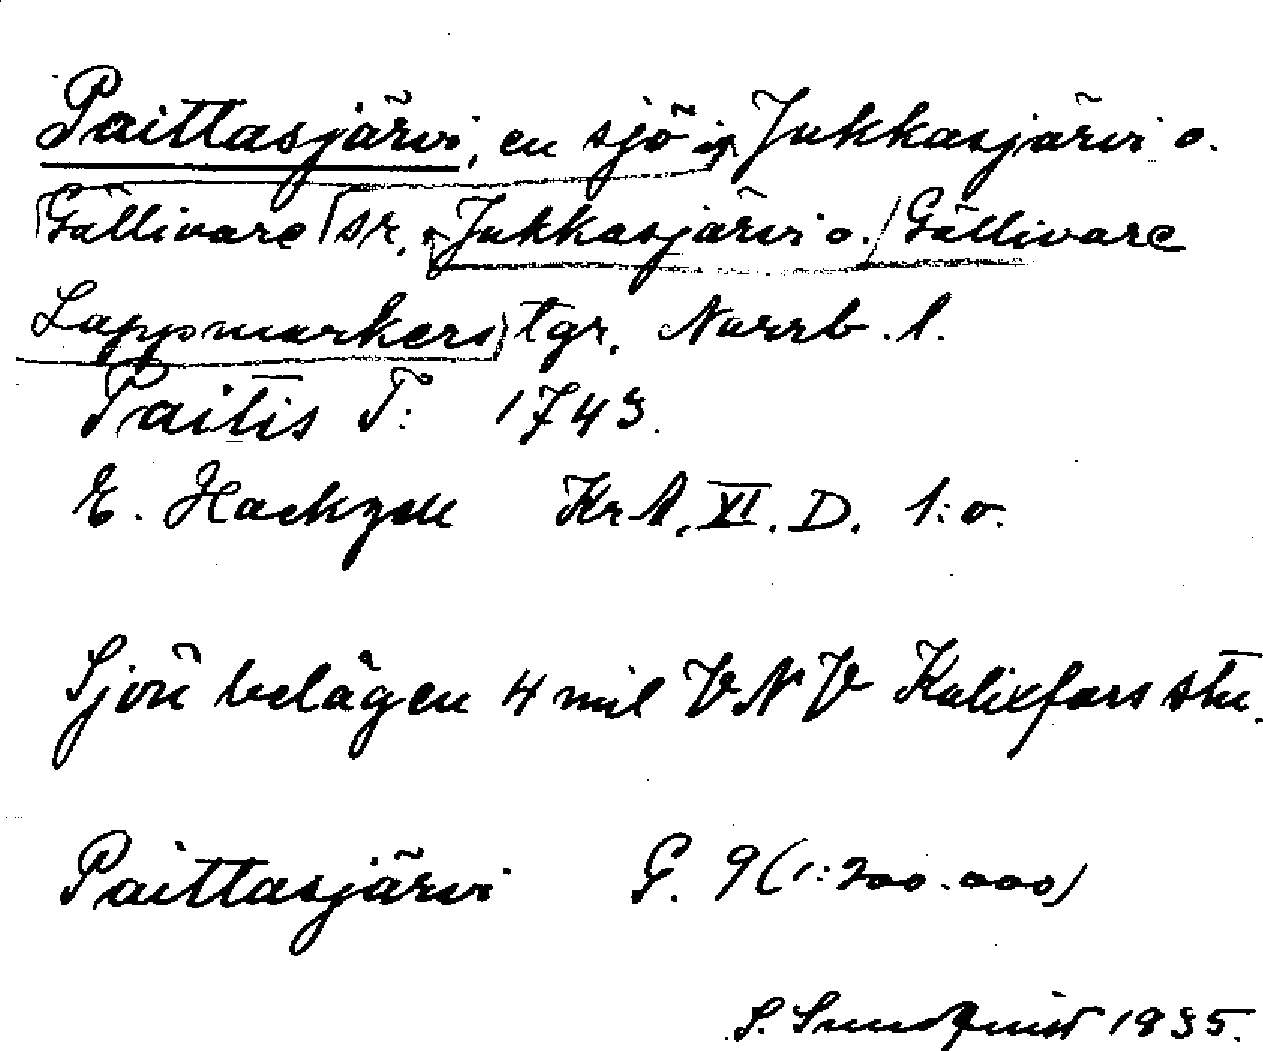 Paittasjärvi, en sjö i Jukkasjärvi o.
Gällivare sr. Jukkasjärvi o. Gällivare
Lappmarkers tgr. Norrb. l.
Paitis T: 1743.
E. Hackzell Krt. XI. D. 1:o.
Sjön belägen 4 mil VNV Kalixfors stn.
Paittasjärvi G. 9 (1:200.000)
S. Sundquist 1935.